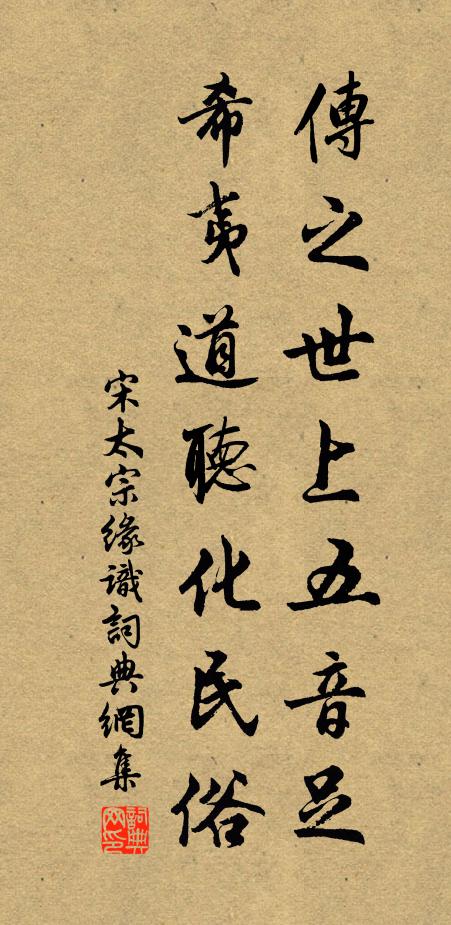 傳之世上五音足
希夷道聽化民俗
宋太宗緣識詞典網集
詞典網印